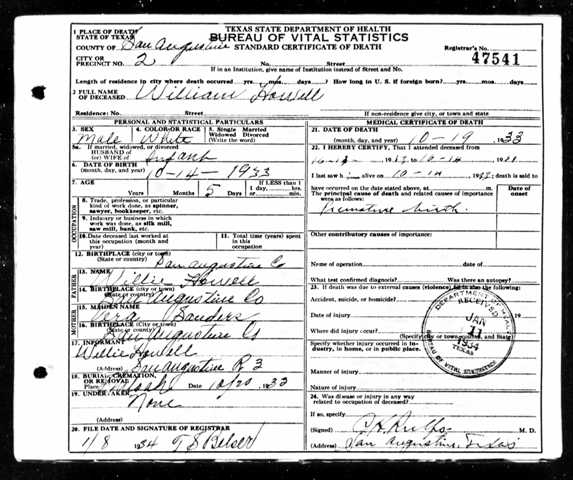 TEXAS STATE DEPARTMENT OF HEALTH
BUREAU OF VITAL STATISTICS
STANDARD CERTIFICATE OF DEATH
1 PLACE OF DEATH
STATE OF TEXAS
COUNTY OF San Augustine
CITY OR
PRECINCT NO. 2 No. Street
Registrar's No.
47541
If in an Institution, give name of Institution instead of Street and No.
Length of residence in city where death occurred yrs. mos. days. How long in U. S. if foreign born? yrs. mos. days
2 FULL NAME
OF DECEASED William Howell
Residence: No. Street
If non-residence give city, or town and state
PERSONAL AND STATISTICAL PARTICULARS
3. SEX Male
4. COLOR OR RACE White
5. Single Married
Widowed Divorced
(Write the word)
5a. If married, widowed, or divorced
HUSBAND OF
(or) WIFE OF Infant
6. DATE OF BIRTH
(month, day, year) 10-14-1933
7. AGE Years Months 5 Days If LESS than
1 day, hrs.
or min.
OCCUPATION
8. Trade, profession, or particular
kind of work done, as spinner,
sawyer, bookkeeper, etc.
9. Industry or business in which
work was done, as silk mill,
saw mill, bank, etc.
10. Date deceased last worked at
this occupation (month and
year)
11. Total time (years) spent in
this occupation
12. BIRTHPLACE (City or town)
(State or country) San Augustine Co
FATHER
13. NAME
Willie Howell
14. BIRTHPLACE (City or town)
(State or country) San Augustine Co
MOTHER
15. MAIDEN NAME
Vera Sanders
16. BIRTHPLACE (City or town)
(State or country) San Augustine Co
17. INFORMANT
Willie Howell
San Augustine R 3
18. BURIAL, CREMATION,
OR REMOVAL
Place Date 10/20 1933
19. UNDERTAKER
None
20. FILE DATE AND SIGNATURE OF REGISTRAR
1/8 1934 T S Belser
MEDICAL CERTIFICATE OF DEATH
21. DATE OF DEATH
(month, day, year) 10-19 1933
22. I HEREBY CERTIFY, That I attended deceased from
I last saw h alive on 10-14 ; death is said to
have occurred on the date stated above, at m.
The principal cause of death and related causes of importance
were as follows:
Date of
onset
Premature birth.
Other contributory causes of importance:
Name of operation date of
What test confirmed diagnosis? Was there an autopsy?
23. If death was due to external causes (violence) fill in also the following:
Accident, suicide, or homicide?
Date of injury 19
Where did injury occur?
(Specify city or town, county, and State)
Specify whether injury occurred in industry, in home, or in public place.
Manner of injury
Nature of injury
24. Was disease or injury in any way
related to occupation of deceased?
If so, specify
(Signed) M. D.
(Address) San Augustine, Texas
DEPARTMENT OF HEALTH
RECEIVED
JAN
11
1934
TEXAS
BUREAU OF VITAL STATISTICS